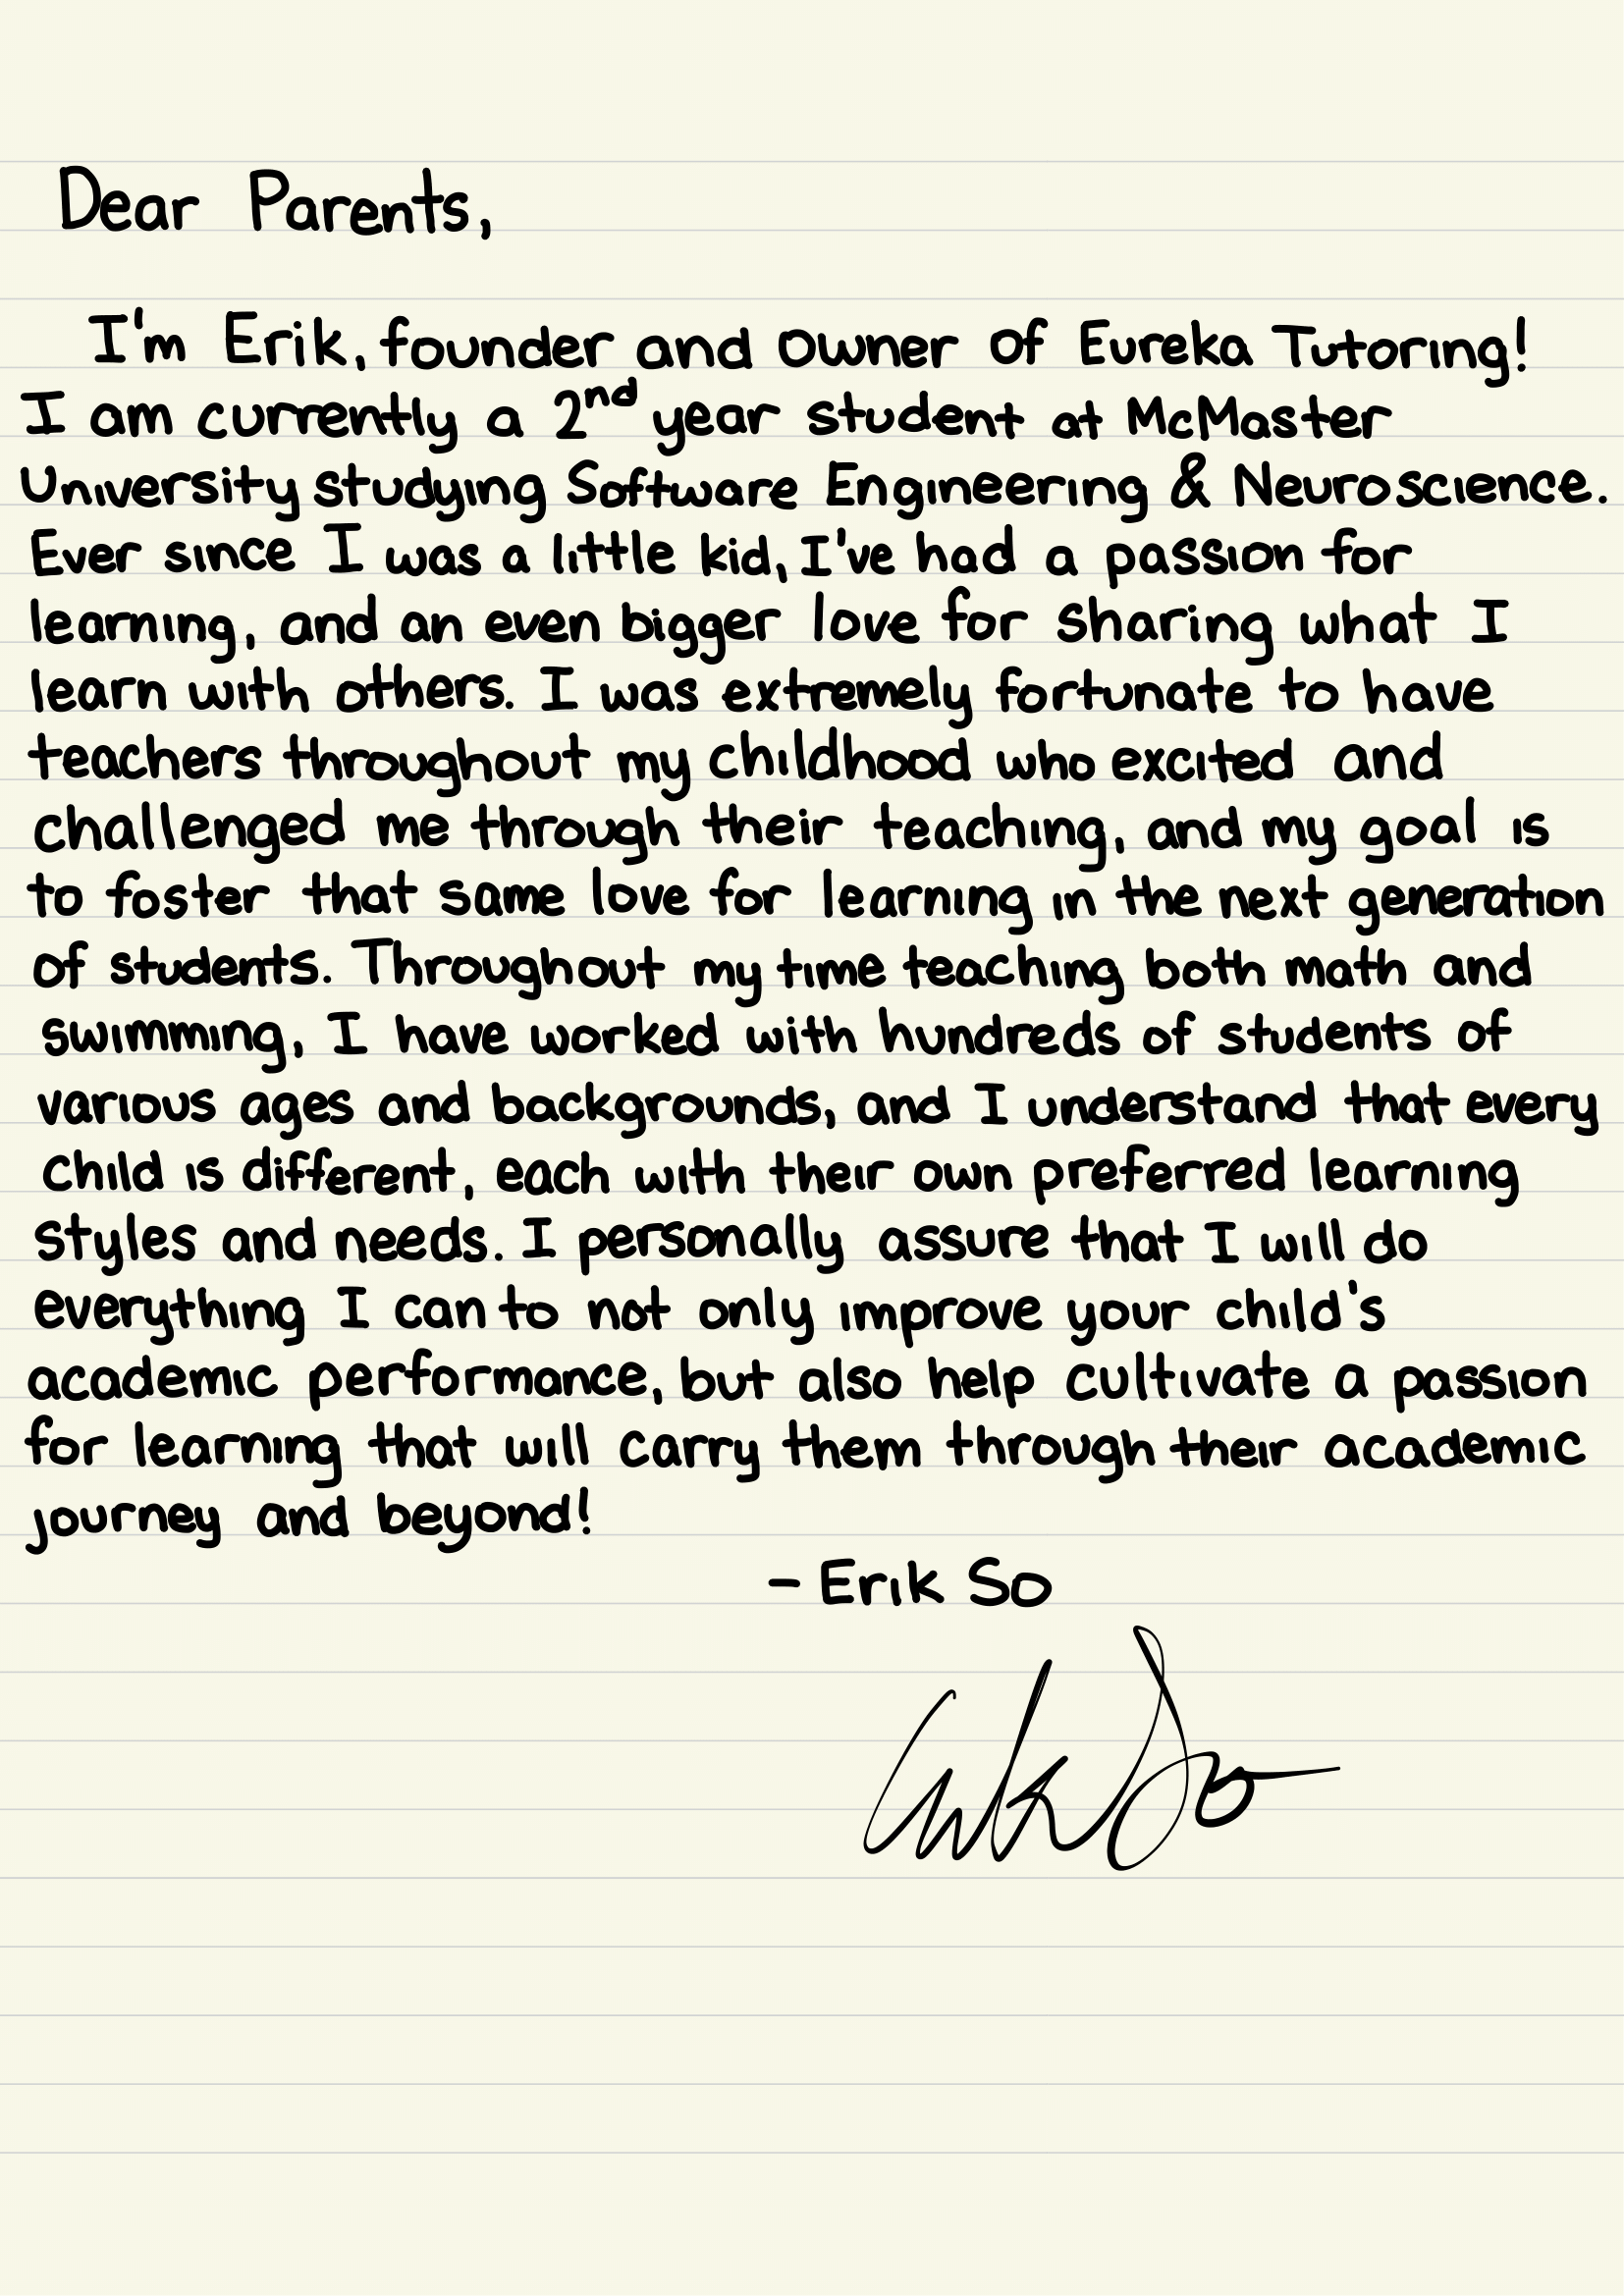 Dear Parents,
I'm Erik, founder and owner of Eureka Tutoring!
I am currently a 2nd year student at McMaster
University studying Software Engineering & Neuroscience.
Ever since I was a little kid, I've had a passion for
learning, and an even bigger love for sharing what I
learn with others. I was extremely fortunate to have
teachers throughout my childhood who excited and
challenged me through their teaching, and my goal is
to foster that same love for learning in the next generation
of students. Throughout my time teaching both math and
swimming, I have worked with hundreds of students of
various ages and backgrounds, and I understand that every
child is different, each with their own preferred learning
styles and needs. I personally assure that I will do
everything I can to not only improve your child's
academic performance, but also help cultivate a passion
for learning that will carry them through their academic
journey and beyond!
- Erik So
Erik So